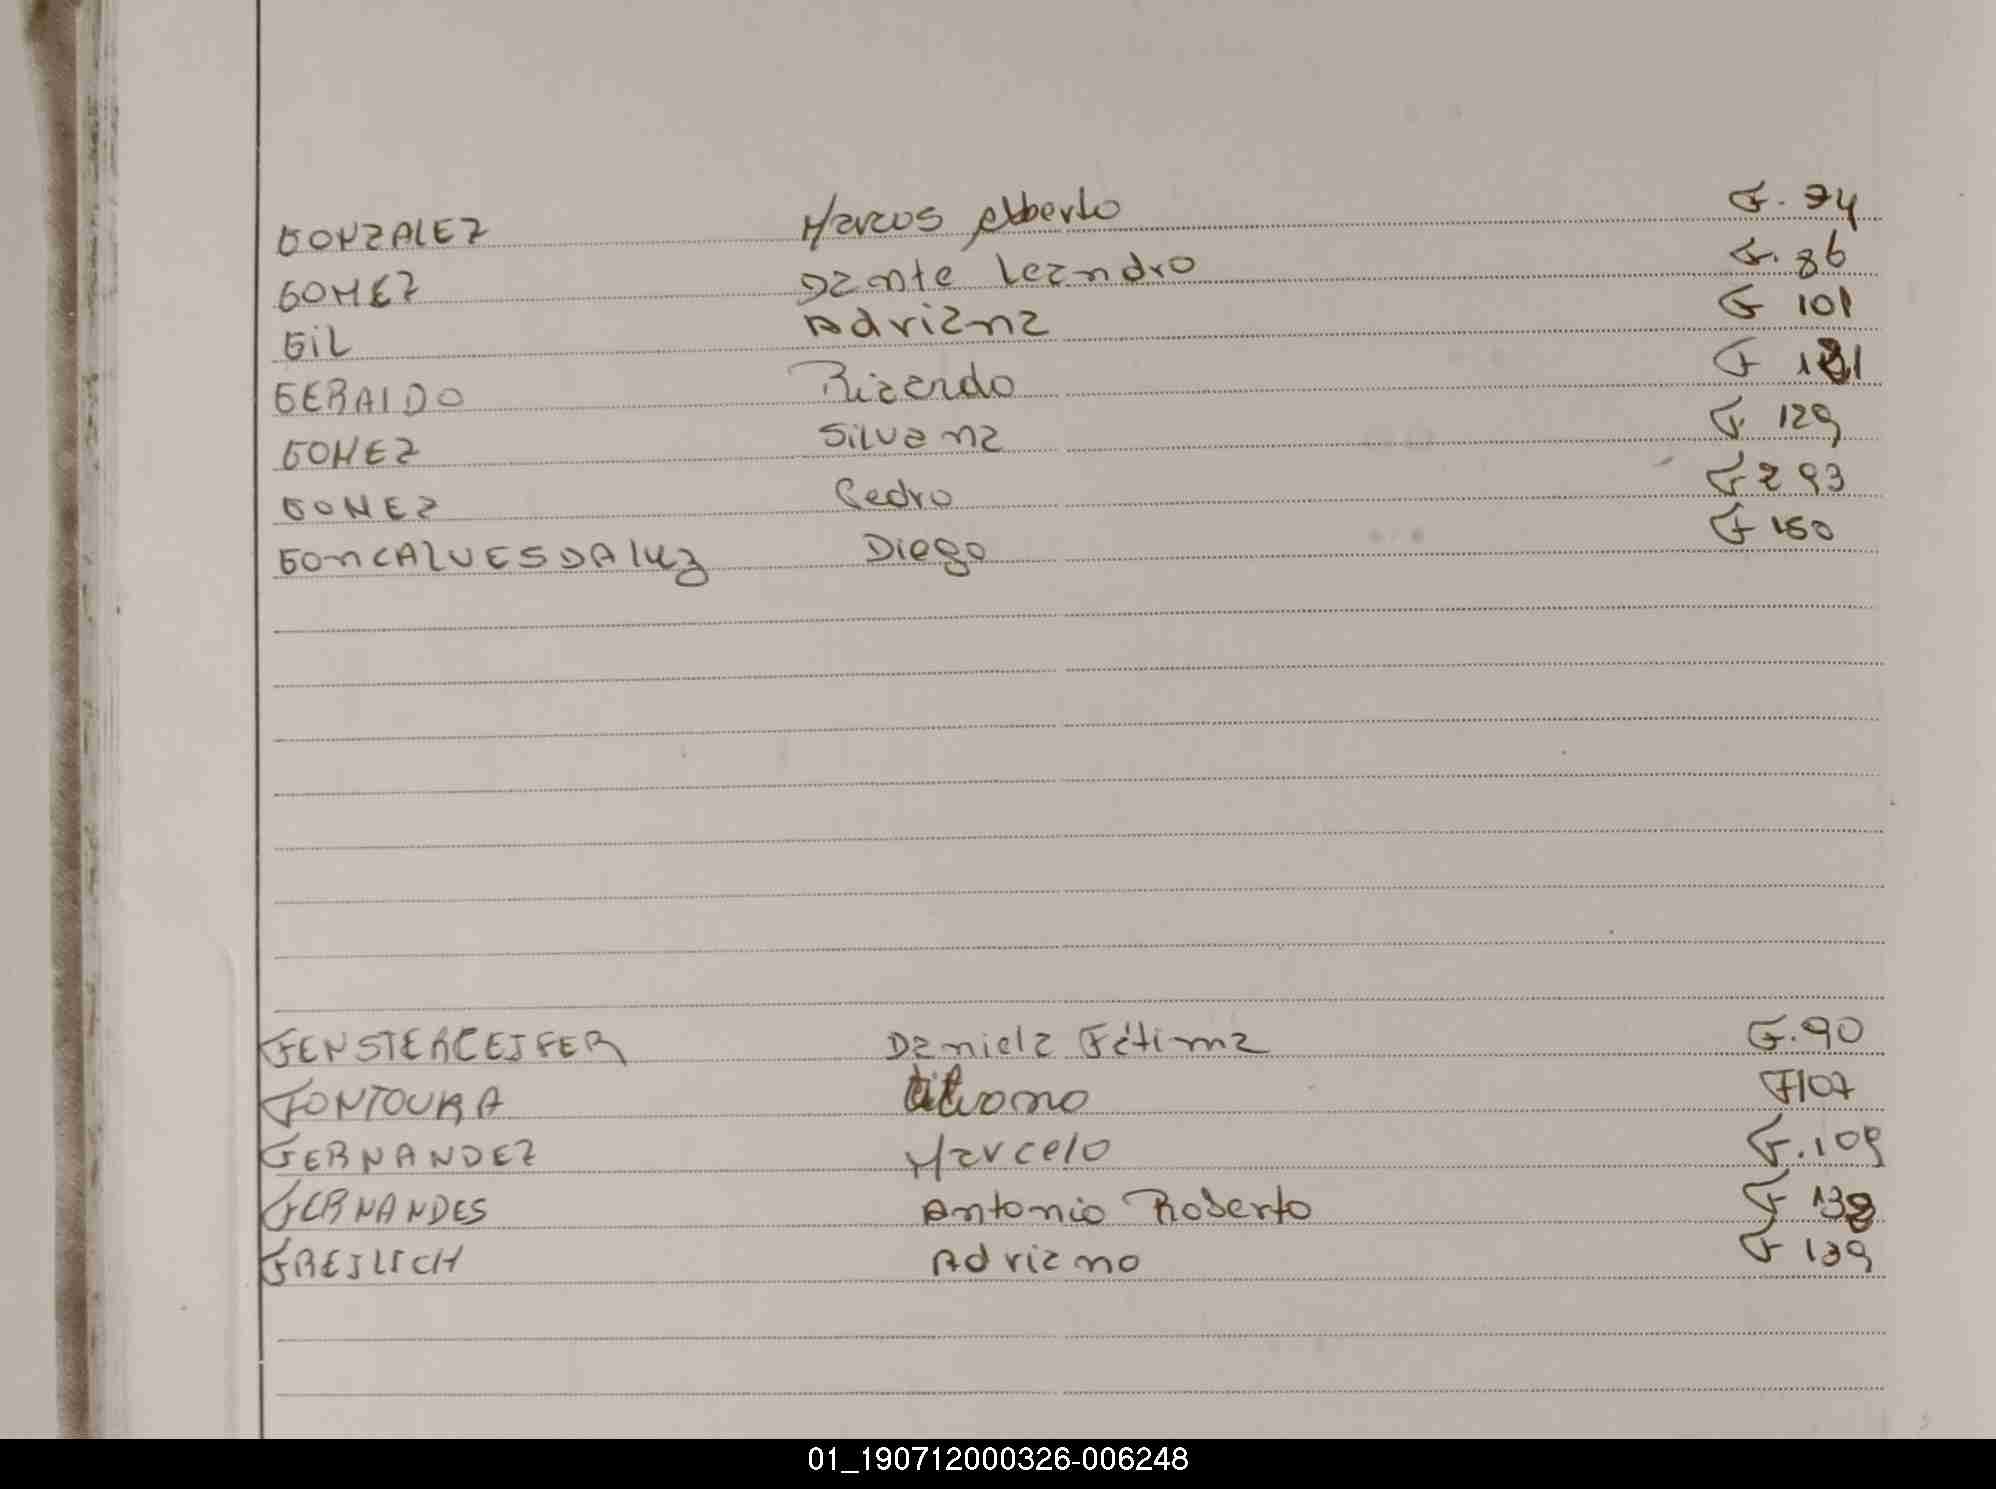 GONZALEZ Marcos Alberto F. 74
GOMEZ Dante Leandro F. 86
GIL Adriana F 101
GERALDO Ricardo F
GOMEZ Silvana F 129
GOMEZ Pedro F 293
GONCALVES DA LUZ Diego F 150
FENSTERCEIFER Daniela Fátima F. 90
FONTOURA F 107
FERNANDEZ Marcelo F. 109
FERNANDES Antonio Roberto F 138
FREILICH Adriano F 139
01_190712000326-006248